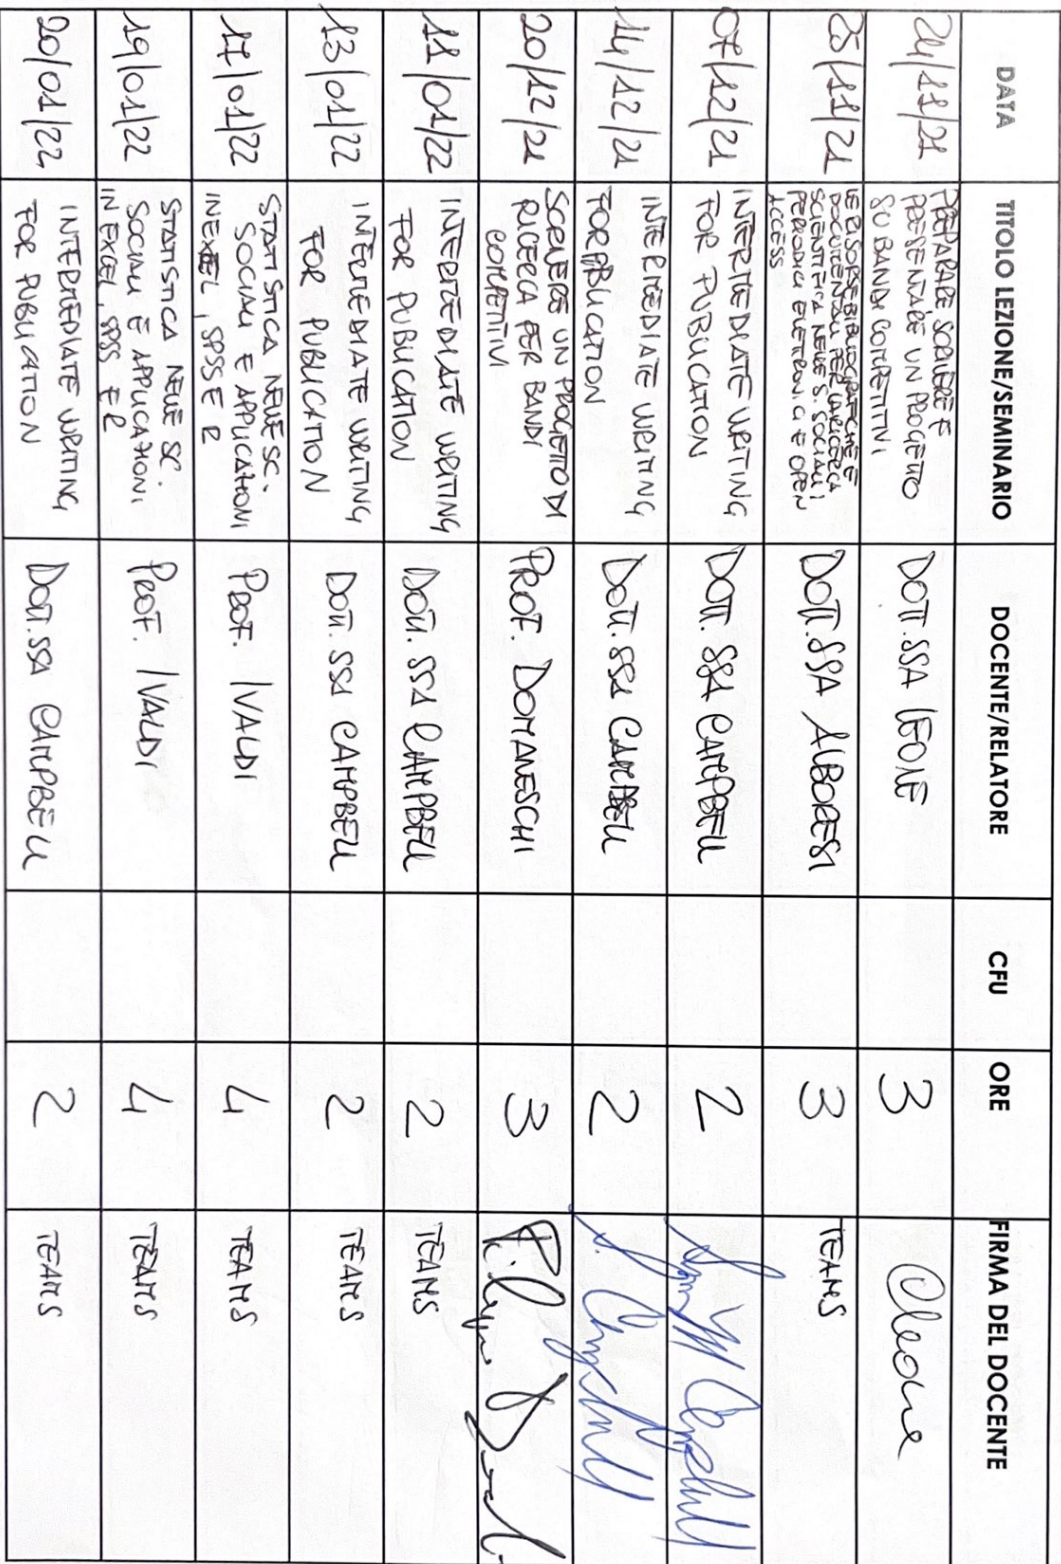 DATA TITOLO LEZIONE/SEMINARIO DOCENTE/RELATORE CFU ORE FIRMA DEL DOCENTE
24/11/21 PREPARARE, SCRIVERE E
PRESENTARE UN PROGETTO
SU BANDI COMPETITIVI DOTT.SSA LEONE 3 CLeone
25/11/21 LE RISORSE BIBLIOGRAFICHE E
DOCUMENTALI PER LA RICERCA
SCIENTIFICA NELLE S. SOCIALI: I
PERIODICI ELETTRONICI E OPEN
ACCESS DOTT.SSA ALBORESI 3 TEAMS
07/12/21 INTERMEDIATE WRITING
FOR PUBLICATION DOTT. SSA CAMPBELL 2 Campbell
14/12/21 INTERMEDIATE WRITING
FOR PUBLICATION DOTT. SSA CAMPBELL 2
20/12/21 SCRIVERE UN PROGETTO DI
RICERCA PER BANDI
COMPETITIVI PROF. DOMANESCHI 3
11/01/22 INTERMEDIATE WRITING
FOR PUBLICATION DOTT. SSA CAMPBELL 2 TEAMS
13/01/22 INTERMEDIATE WRITING
FOR PUBLICATION DOTT. SSA CAMPBELL 2 TEAMS
17/01/22 STATISTICA NELLE SC.
SOCIALI E APPLICAZIONI
IN EXCEL, SPSS E R PROF. IVALDI 4 TEAMS
19/01/22 STATISTICA NELLE SC.
SOCIALI E APPLICAZIONI
IN EXCEL, SPSS E R PROF. IVALDI 4 TEAMS
20/01/22 INTERMEDIATE WRITING
FOR PUBLICATION DOTT.SSA CAMPBELL 2 TEAMS